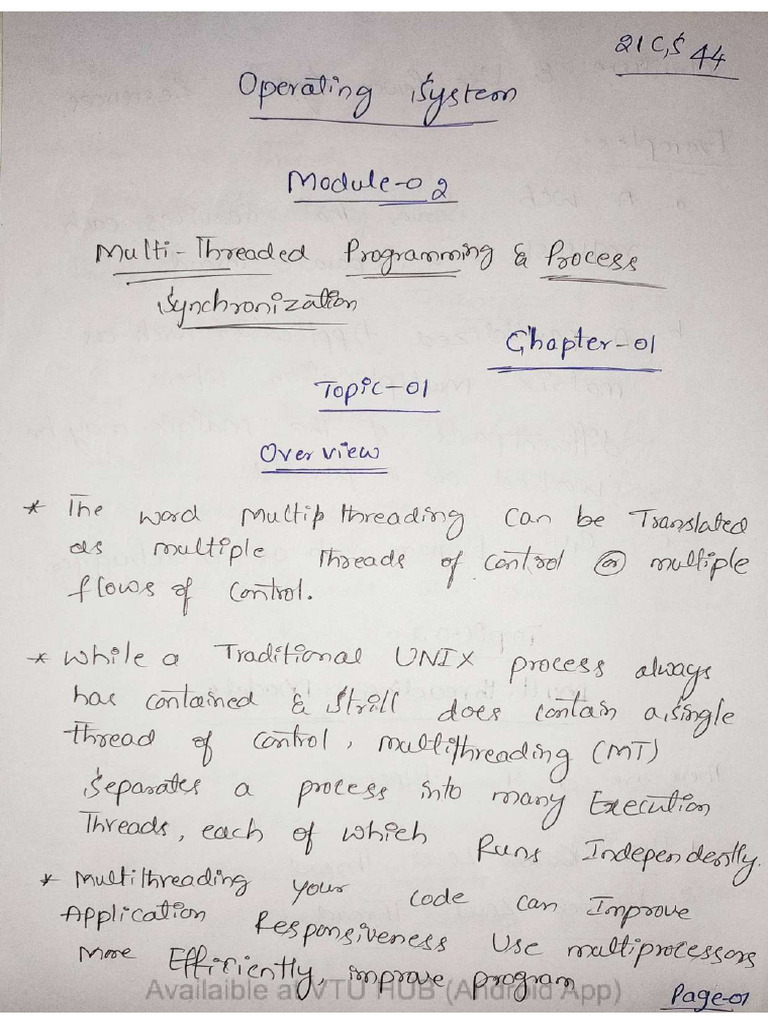 21CS 44
Operating System
Module-02
Multi-Threaded Programming & Process
Synchronization
Chapter-01
Topic-01
Overview
* The word Multipthreading can be Translated
as multiple threads of control or multiple
flows of control.
* While a Traditional UNIX process always
has contained & Strill does contain a single
thread of control, multithreading (MT)
Separates a process into many Execution
Threads, each of which Runs Independently.
* Multithreading your code can Improve
Application Responsiveness Use multiprocessors
More Efficiently, improve program
Availaible at VTU HUB (Android App)
Page-01